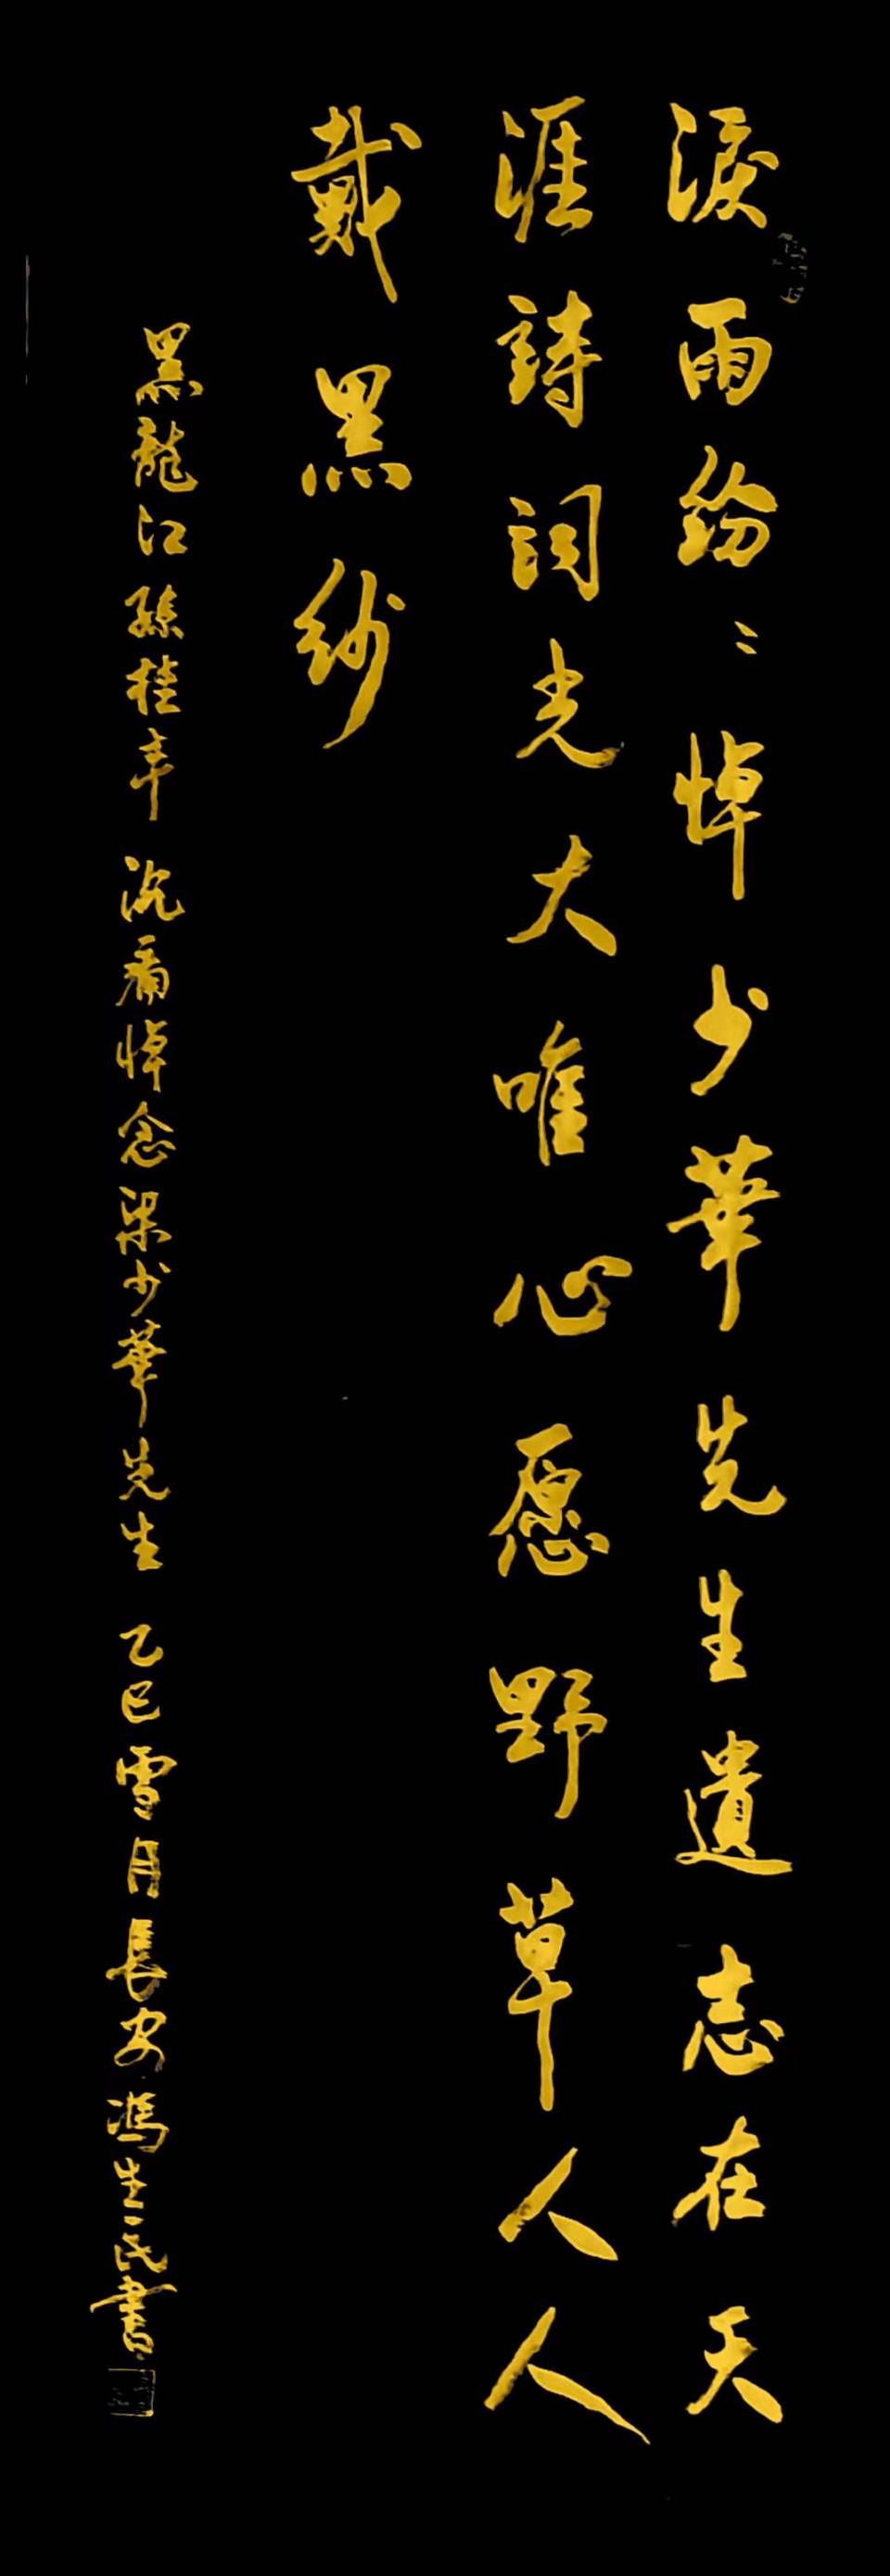 淚雨紛〻悼少華先生遺志在天
涯詩詞光大唯心愿野草人人
戴黑紗
黑龍江孫桂丰沉痛悼念梁少華先生乙巳雪月長安馮生民書